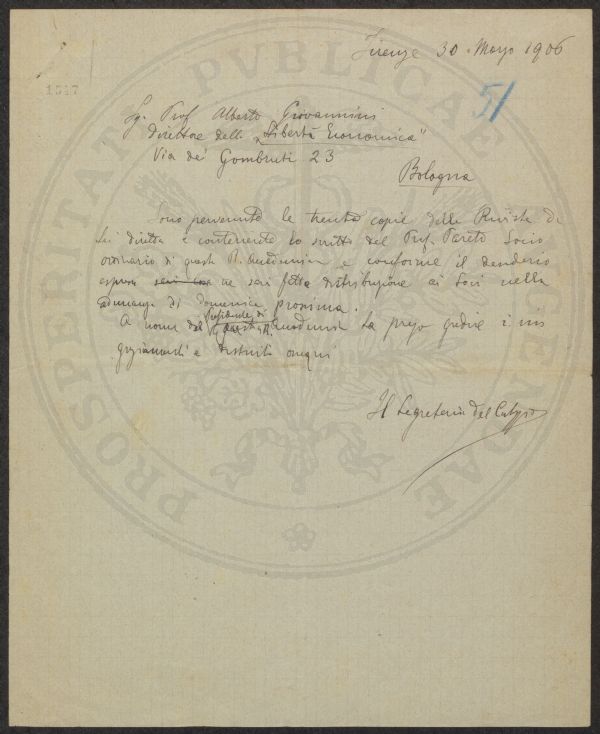 Firenze 30 Marzo 1906
1517
51
Sg. Prof Alberto Giovannini
Direttore della "Libertà Economica"
Via de' Gombruti 23
Bologna
Sono pervenute le trenta copie della Rivista da
Lei diretta e contenente lo scritto del Prof. Pareto Socio
ordinario di questa R. Accademia e conforme il desiderio
espresso ne sarà fatta distribuzione ai Soci nella
adunanza di domenica prossima.
A nome del Presidente di
questa R. Accademia La prego gradire i miei
ringraziamenti e distinti ossequi
Il Segretario Del Caldo
PROSPERITATI PVBLICAE AVGENDAE